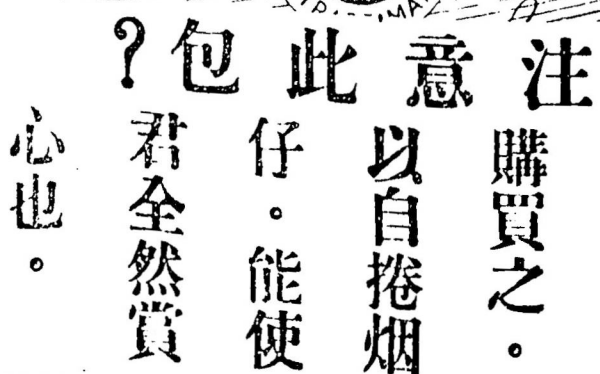 注意此包?
購買之。
以自捲烟
仔。能使
君全然賞
心也。